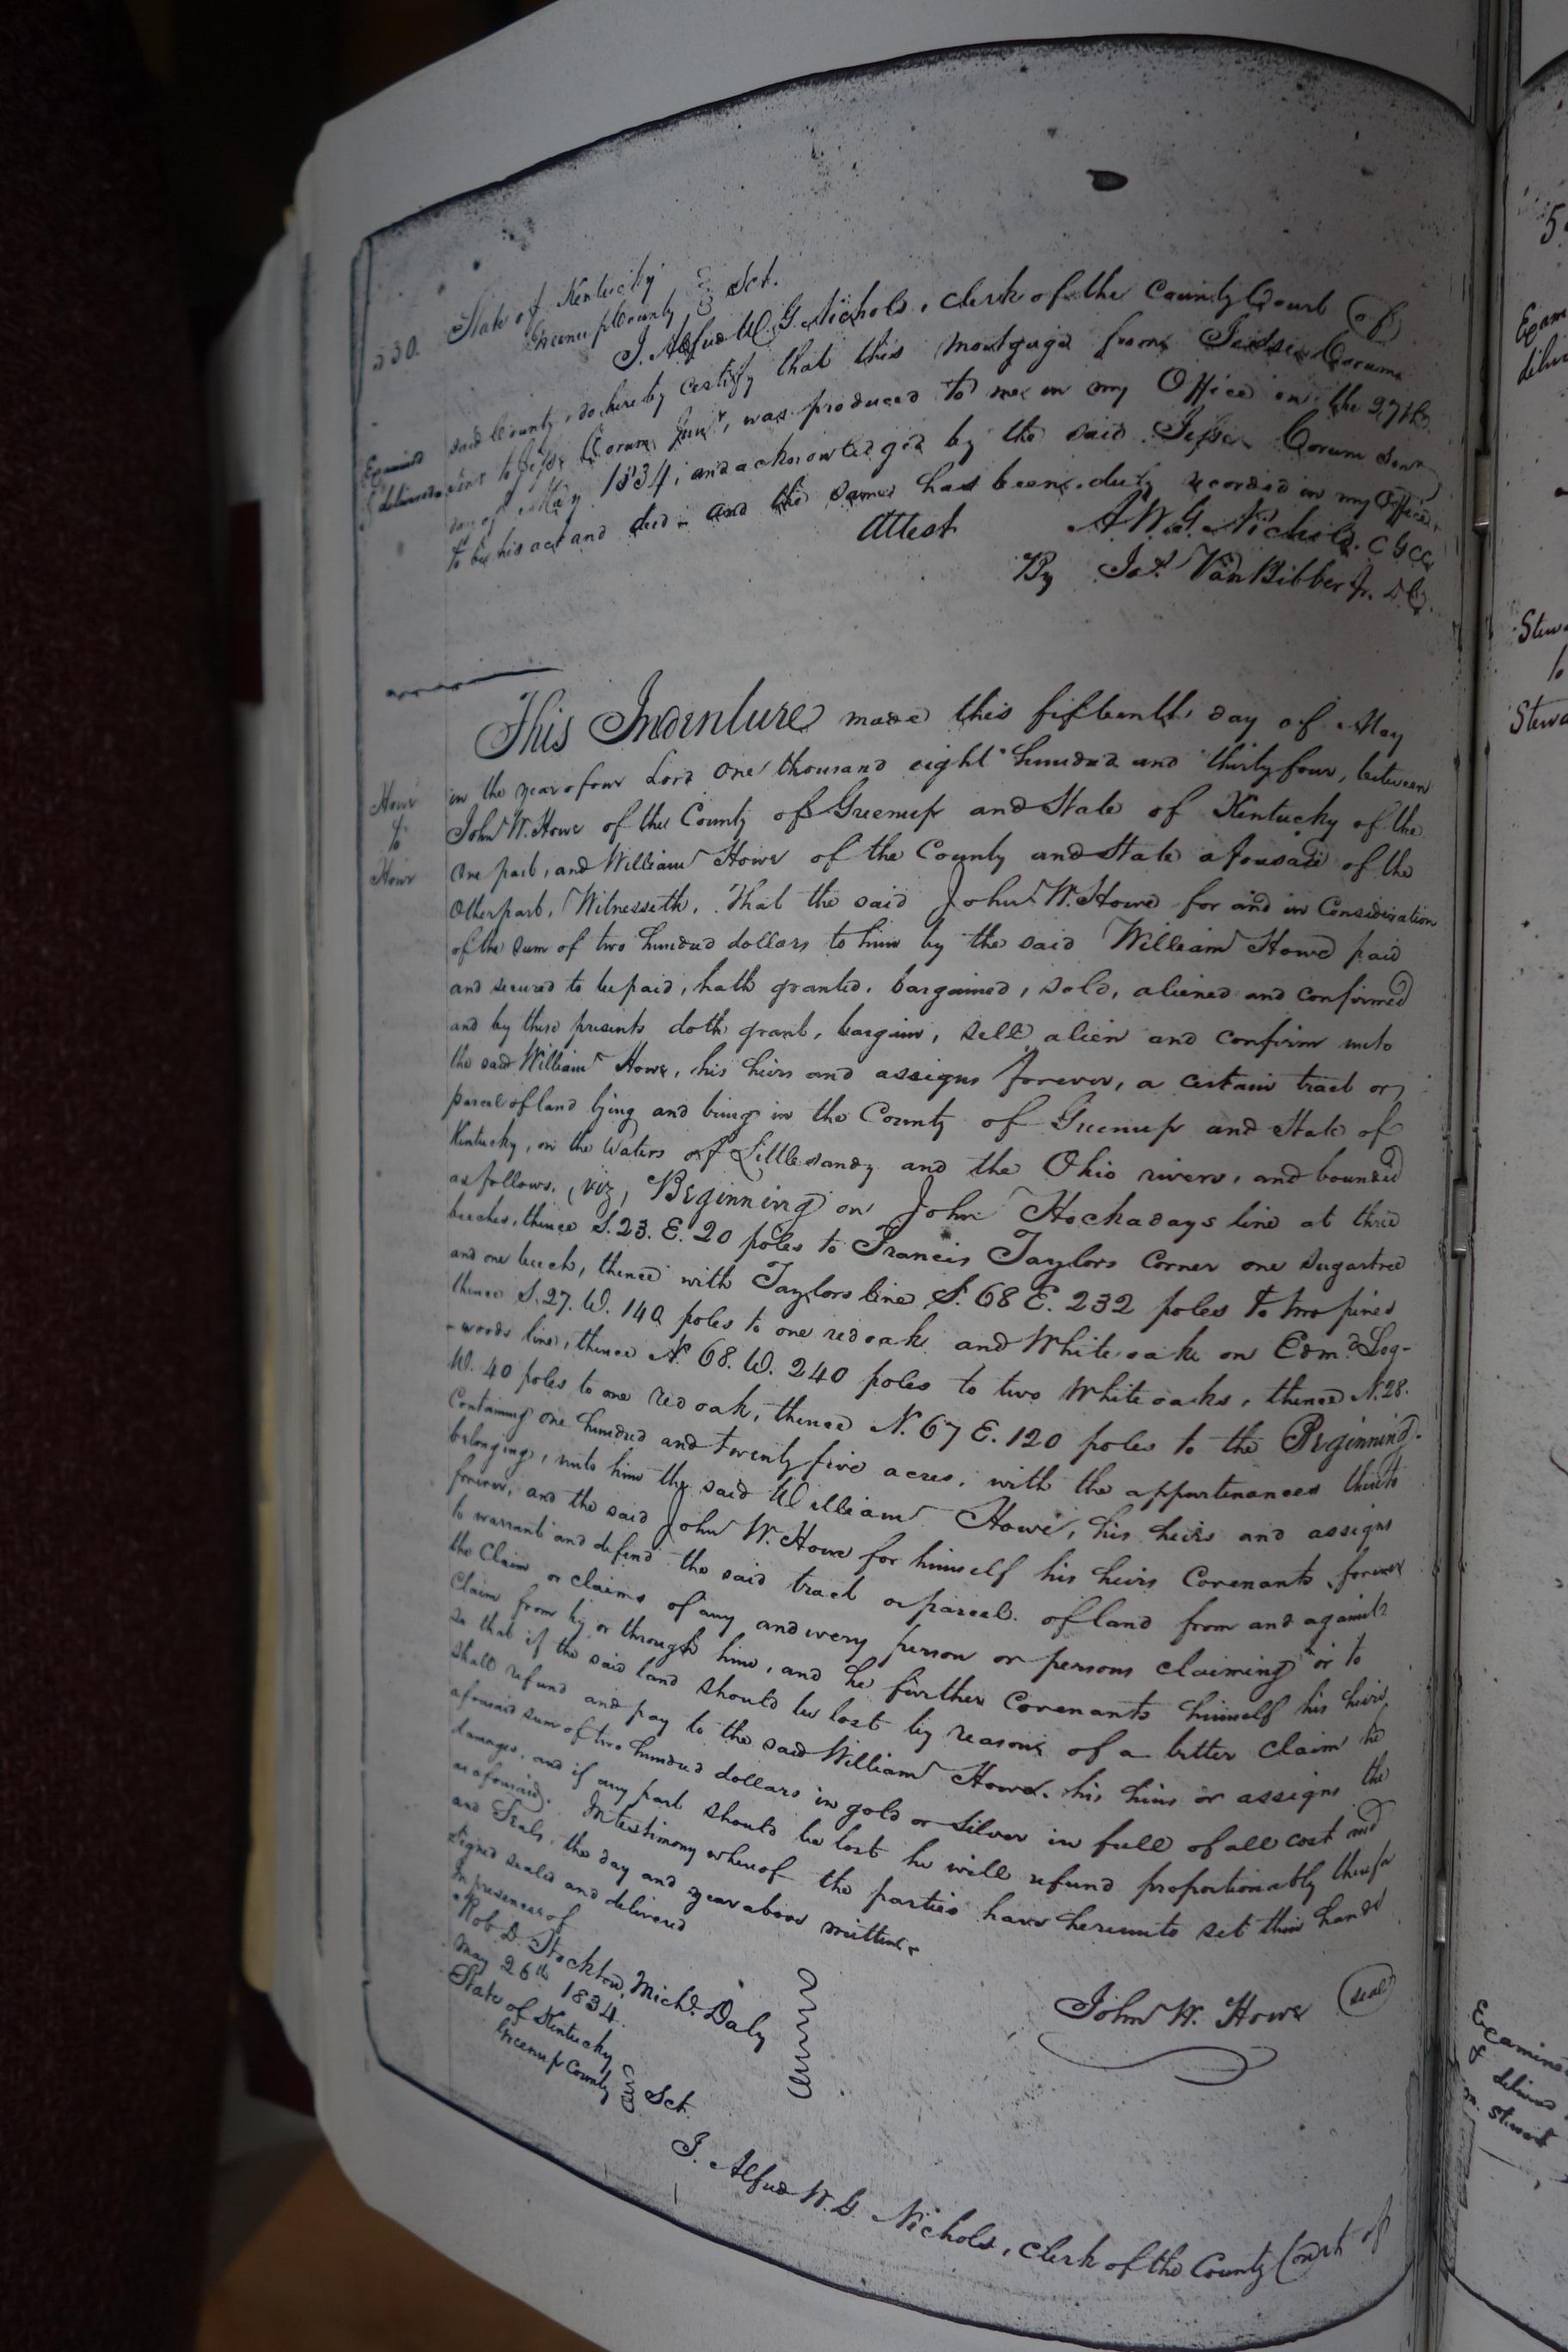 530.
State of Kentucky
Greenup County, Sct.
I. Alfred W. G. Nichols, Clerk of the County Court of
said County, do hereby certify that this mortgage from Jesse Corum
Examined
& delivered
senr to Jesse Corum Junr, was produced to me in my Office on the 27th
day of May 1834, and acknowledged by the said Jesse Corum Senr
to be his act and deed and the same has been duly recorded in my Office
Attest A. W. G. Nichols. C G C C
By Jas. VanBibber Jr. D C.
This Indenture made this fifteenth day of May
in the year of our Lord One thousand eight hundred and thirty four, between
Howe
to
Howe
John W. Howe of the County of Greenup and State of Kentucky of the
One part, and William Howe of the County and State aforesaid of the
Other part, Witnesseth, That the said John W. Howe for and in Consideration
of the sum of two hundred dollars to him by the said William Howe paid
and secured to be paid, hath granted, bargained, sold, aliened and confirmed
and by these presents doth grant, bargain, sell alien and confirm unto
the said William Howe, his heirs and assigns forever, a certain tract or
parcel of land lying and being in the County of Greenup and State of
Kentucky, on the Waters of Littlesandy and the Ohio rivers, and bounded
as follows, (viz, Beginning on John Hockadays line at three
beeches, thence S. 23. E. 20 poles to Francis Taylors Corner one sugartree
and one beech, thence with Taylors line S. 68 E. 232 poles to two pines
thence S. 27. W. 140 poles to one red oak and White oak on Edmd. Log-
-woods line, thence N. 68. W. 240 poles to two White oaks, thence N. 28.
W. 40 poles to one red oak, thence N. 67 E. 120 poles to the Beginning.
Containing one hundred and twenty five acres, with the appurtenances thereto
belonging, unto him the said William Howe, his heirs and assigns
forever, and the said John W. Howe for himself his heirs Covenants forever
to warrant and defend the said tract or parcel of land from and against
the Claim or claims of any and every person or persons claiming or to
Claim from by or through him, and he further Covenants himself his heirs
so that if the said land should be lost by reasons of a better claim he
shall refund and pay to the said William Howe, his heirs or assigns the
aforesaid sum of two hundred dollars in gold or silver in full of all cost and
damages, and if any part should be lost he will refund proportionably therefor
as aforesaid. In testimony whereof the parties have hereunto set their hands
and Seals, the day and year above written.
Signed sealed and delivered
In presence of
Rob. D. Stockton, Michl. Daly
May 26th 1834.
John W. Howe (seal)
State of Kentucky
Greenup County Sct.
I. Alfred W. G. Nichols, Clerk of the County Court of
Examined
& delivered
Stewart